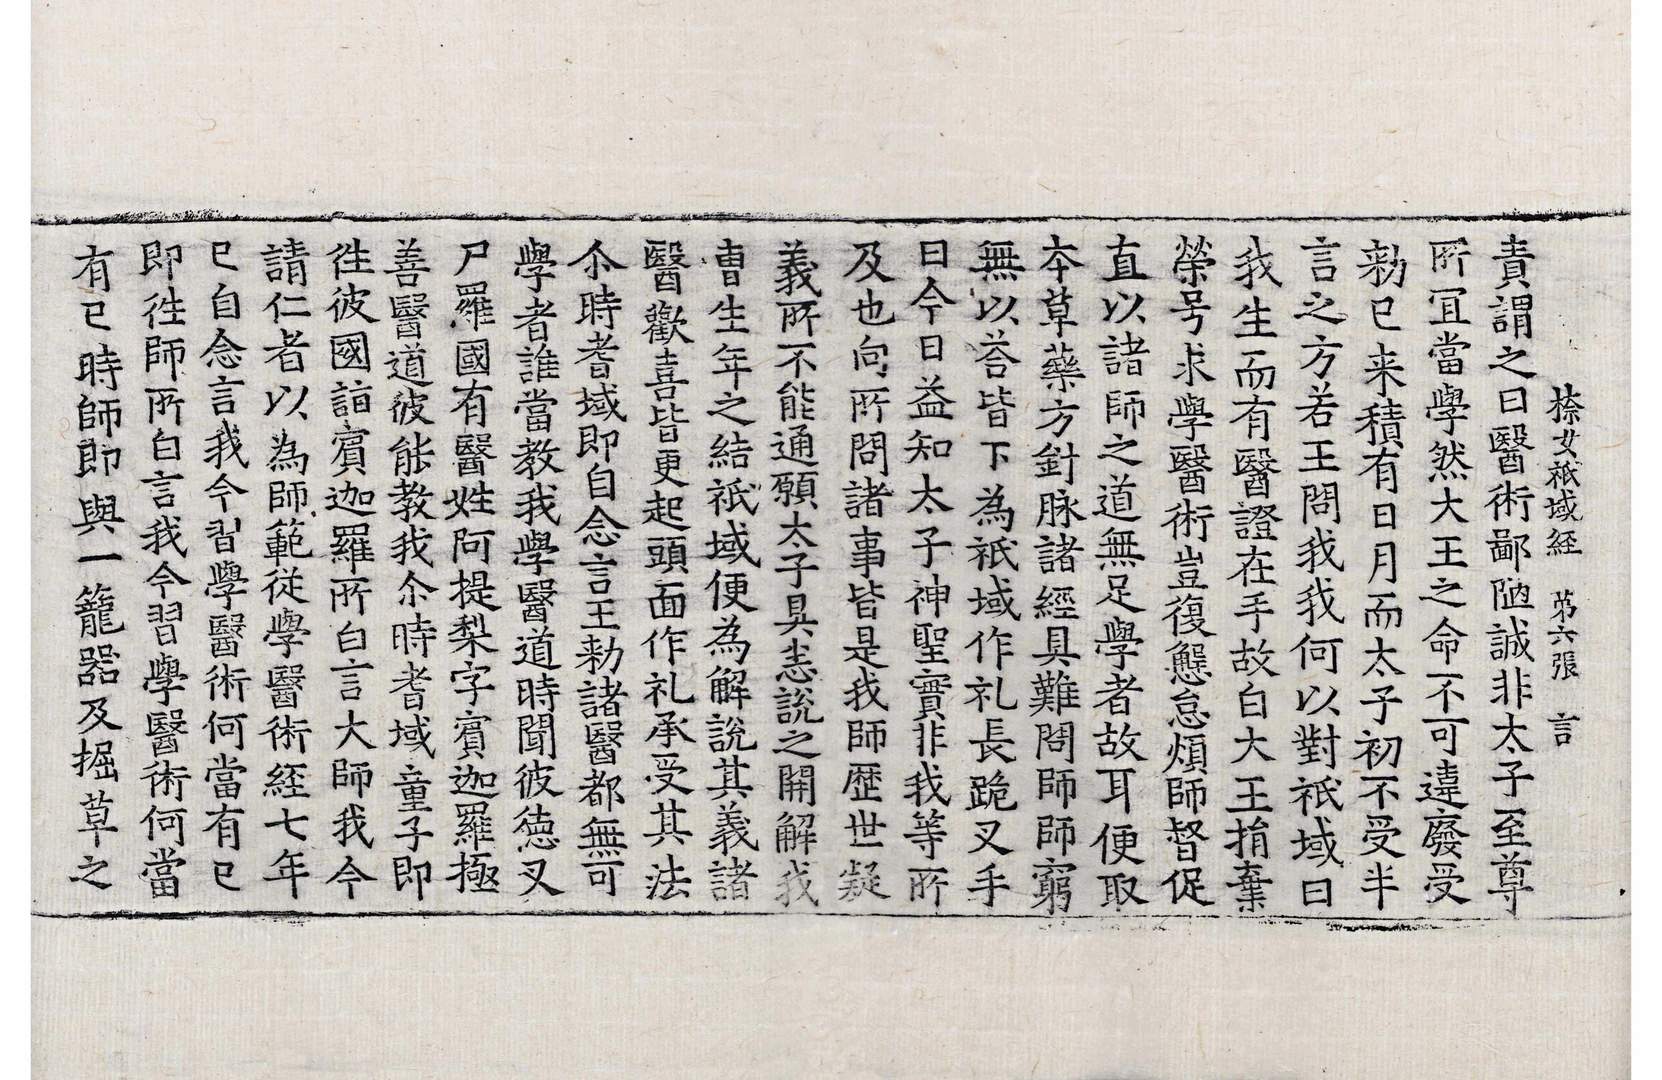 㮈女祇域経 苐六張 言
責謂之曰醫術鄙陋誠非太子至尊
所冝當學然大王之命不可違廢受
勑已来積有日月而太子初不受半
言之方若王問我我何以對祇域曰
我生而有醫證在手故白大王捐棄
榮号求學醫術豈復懈怠煩師督促
直以諸師之道無足學者故耳便取
本草藥方針脉諸經具難問師師窮
無以荅皆下為祇域作礼長跪叉手
曰今日益知太子神聖實非我等所
及也向所問諸事皆是我師歴世疑
義所不能通願太子具悉說之開解我
曺生年之結祇域便為解說其義諸
醫歡喜皆更起頭面作礼承受其法
尒時耆域即自念言王勑諸醫都無可
學者誰當教我學醫道時聞彼徳叉
尸羅國有醫姓阿提梨字賓迦羅極
善醫道彼能教我尒時耆域童子即
徃彼國詣賓迦羅所白言大師我今
請仁者以為師範従學醫術経七年
已自念言我今習學醫術何當有已
即徃師所白言我今習學醫術何當
有已時師即與一籠器及掘草之